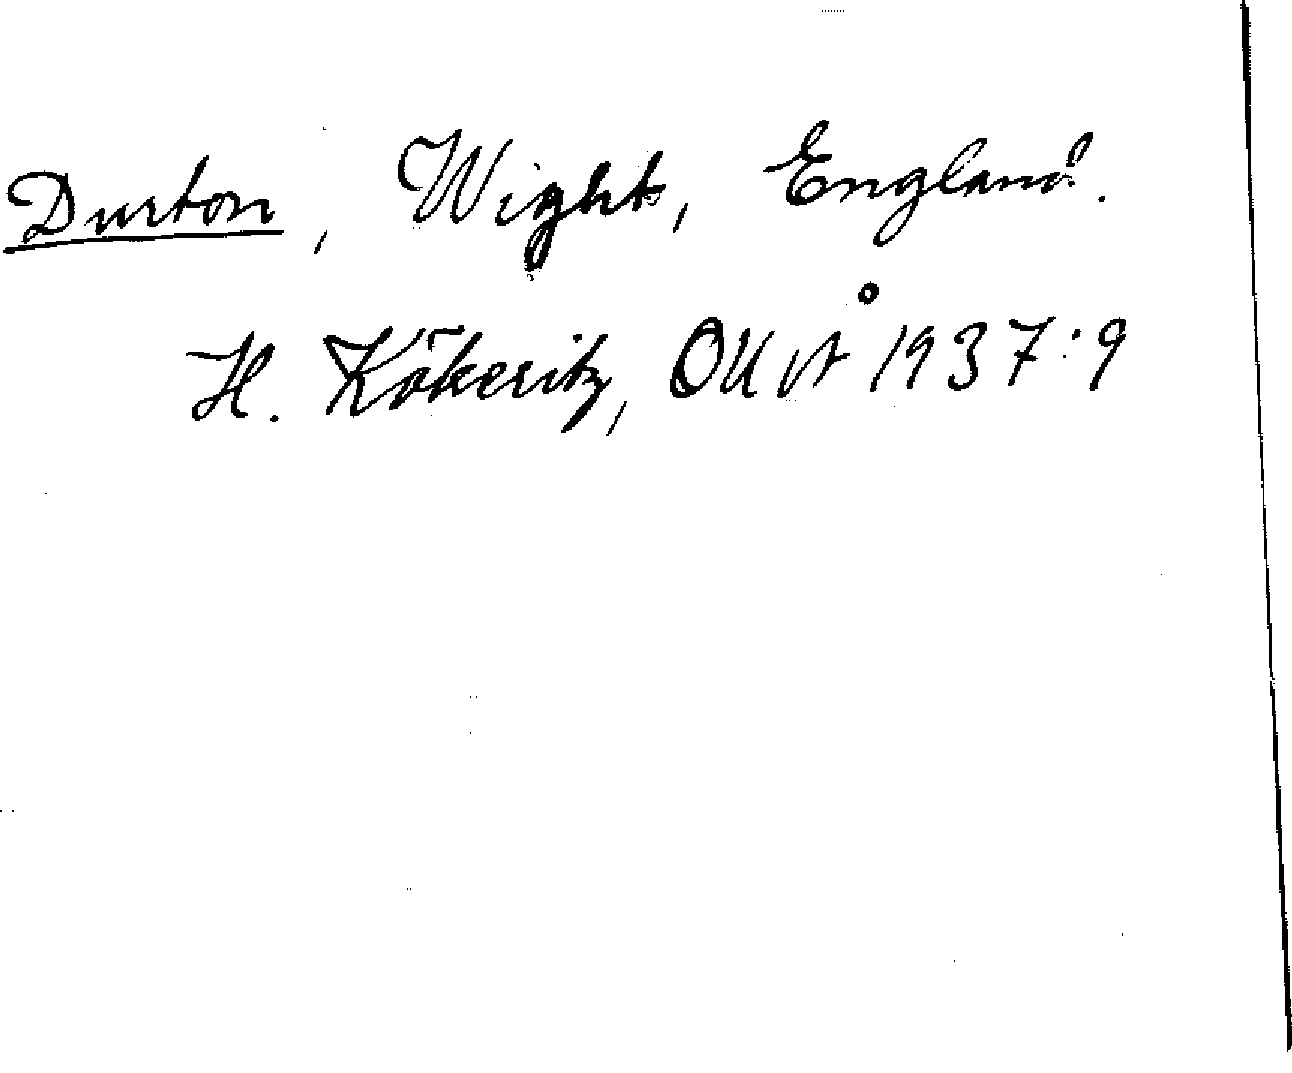 Durton, Wight, England.
H. Kökeritz, OUÅ 1937:9